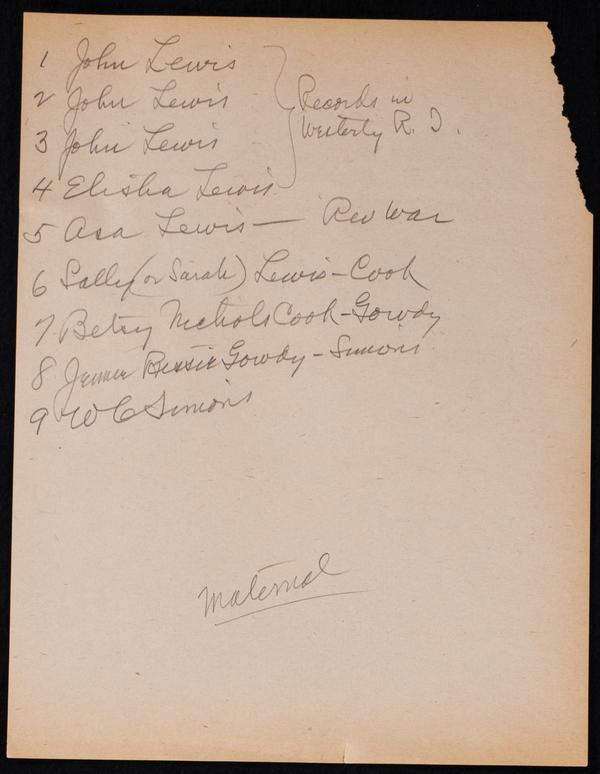 1 John Lewis
2 John Lewis
3 John Lewis
4 Elisha Lewis
Records in
Westerly R. I.
5 Asa Lewis — Rev War
6 Sally (or Sarah) Lewis - Cook
7 Betsy Nichols Cook - Gowdy
8 Bessie Gowdy - Simons
9 W C Simons
maternal